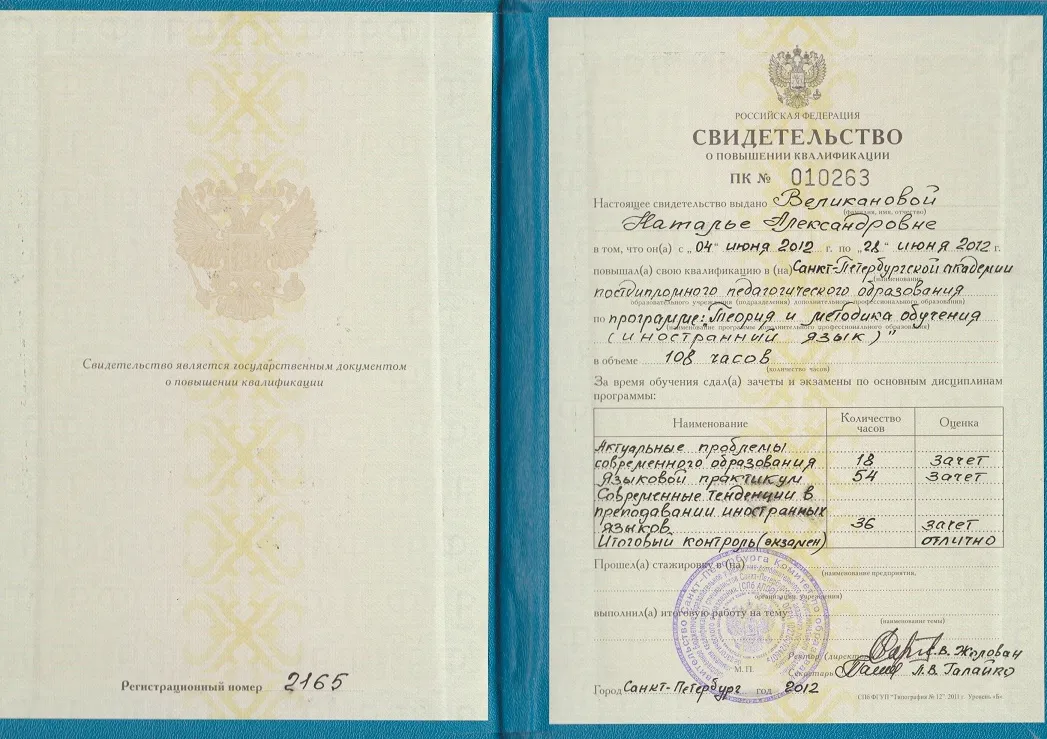 Свидетельство является государственным документом
о повышении квалификации
Регистрационный номер 2165
РОССИЙСКАЯ ФЕДЕРАЦИЯ
СВИДЕТЕЛЬСТВО
О ПОВЫШЕНИИ КВАЛИФИКАЦИИ
ПК № 010263
Настоящее свидетельство выдано Великановой
(фамилия, имя, отчество)
Наталье Александровне
в том, что он(а) с „04" июня 2012 г. по „28" июня 2012 г.
повышал(а) свою квалификацию в (на) Санкт-Петербургской академии
(наименование
постдипломного педагогического образования
образовательного учреждения (подразделения) дополнительного профессионального образования)
по программе: "Теория и методика обучения
(наименование программы дополнительного профессионального образования)
(иностранный язык)"
в объеме 108 часов
(количество часов)
За время обучения сдал(а) зачеты и экзамены по основным дисциплинам
программы:
Наименование Количество часов Оценка
Актуальные проблемы
современного образования 18 зачет
Языковой практикум 54 зачет
Современные тенденции в
преподавании иностранных
языков 36 зачет
Итоговый контроль (экзамен) отлично
Прошел(а) стажировку в (на)
(наименование предприятия,
организации, учреждения)
выполнил(а) итоговую работу на тему
(наименование темы)
Ректор (директор) С.В. Жолован
Секретарь Л.В. Галайко
М.П.
Город Санкт-Петербург год 2012
СПб ФГУП "Типография № 12" 2011 г. Уровень «Б»